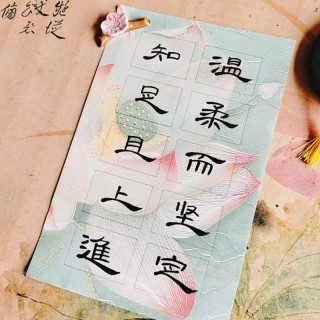 温柔而坚定
知足且上進